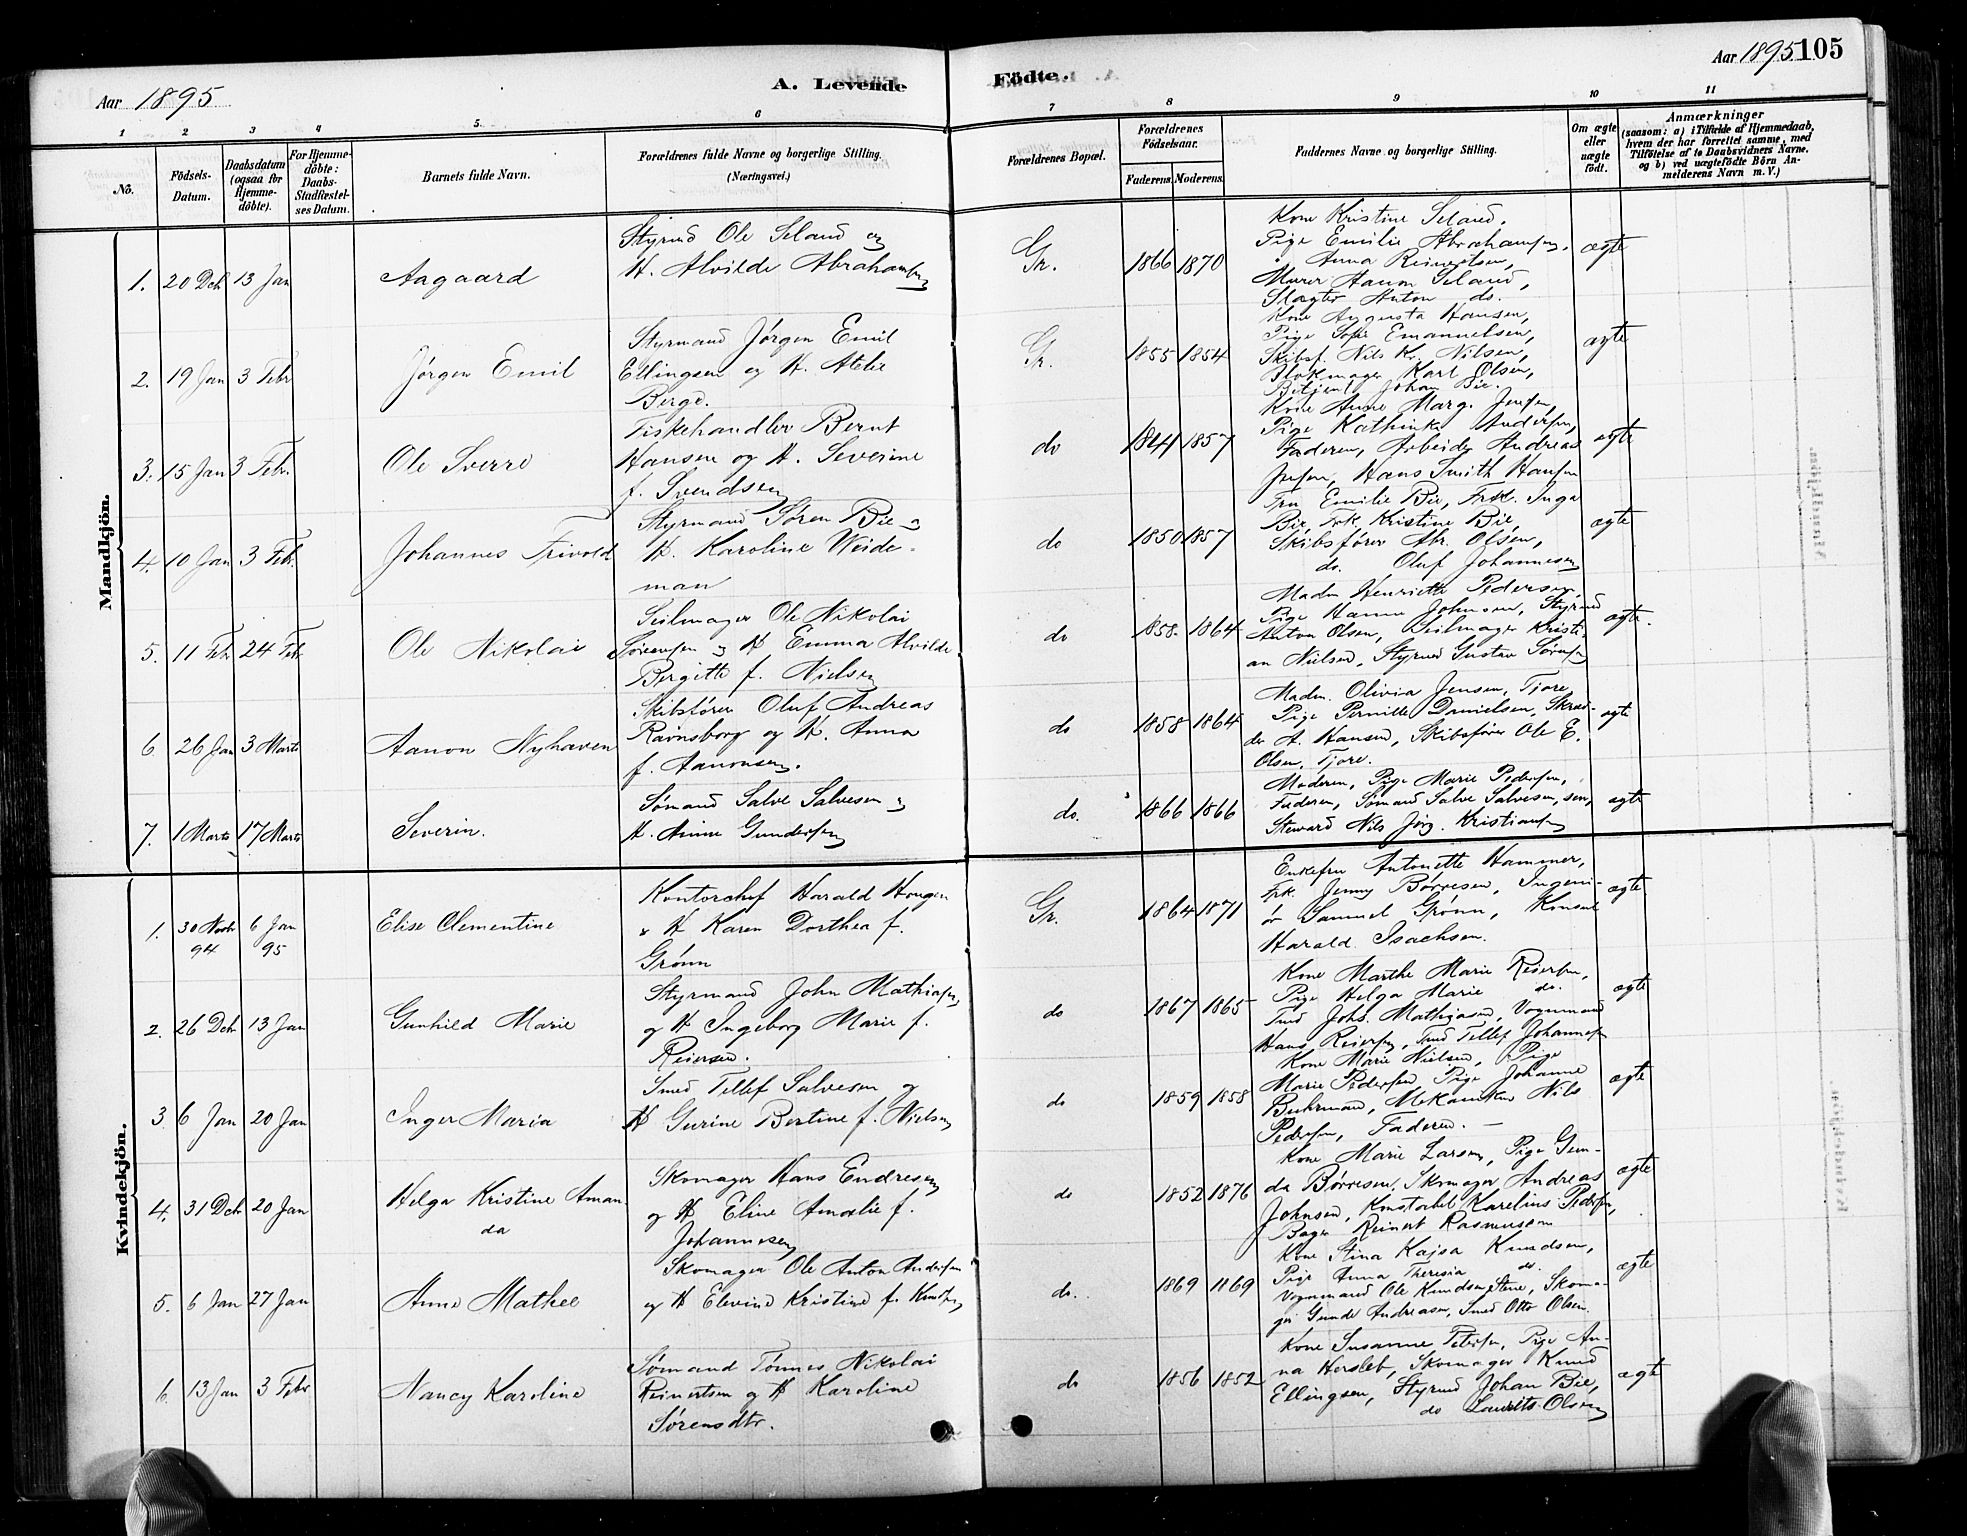 Aar 1895
A. Levende
Födte.
Aar 1895 105
1 2 3 4 5 6 7 8 9 10 11
No.
Födsels-
Datum.
Daabsdatum
(ogsaa for
Hjemme-
döbte).
For Hjemme-
döbte:
Daabs-
Stadfæstel-
ses Datum.
Barnets fulde Navn.
Forældrenes fulde Navne og borgerlige Stilling.
(Næringsvei.)
Forældrenes Bopæl.
Forældrenes
Födselsaar.
Faderens. Moderens.
Faddernes Navne og borgerlige Stilling.
Om ægte
eller
uægte
födt.
Anmærkninger
(saasom: a) i Tilfælde af Hjemmedaab,
hvem der har forrettet samme, med
Tilföielse af to Daabsvidners Navne.
og b) ved uægtefödte Börn An-
melderens Navn m. V.)
Mandkjön.
1. 20 Dcb 13 Jan Aagaard
Styrmd Ole Seland og
H. Alvilde Abrahamsen
Gr. 1866 1870
Kone Kristine Seland,
Pige Emilie Abrahamsen,
" Anna Reinertsen,
Murer Aanon Seland,
Slagter Anton do.
ægte
2. 19 Jan 3 Febr Jørgen Emil
Styrmand Jørgen Emil
Ellingsen og H. Atelie
Berge.
Gr. 1855 1854
Kone Augusta Hansen,
Pige Sofie Emanuelsen,
Skibsf. Nils Kr. Nilsen,
Blokmager Karl Olsen,
Betjent Johan Bie.
ægte
3. 15 Jan 3 Febr. Ole Sverre
Fiskehandler Bernt
Hansen og H. Severine
f. Svendsen
do 1844 1857
Kone Anne Marg. Jensen,
Pige Kathinka Andersen,
Faderen, Arbeider Andreas
Jensen, Hans Smith Hansen
ægte
4. 10 Jan 3 Febr. Johannes Trivold
Styrmand Søren Bie og
H. Karoline Weide-
man
do 1850 1857
Fru Emilie Bie, Frk. Inga
Bie, Frk. Kristine Bie,
Skibsfører Abr. Olsen,
do. Oluf Johannesen
ægte
5. 11 Febr 24 Febr Ole Nikolai
Seilmager Ole Nikolai
Sørensen og H Emma Alvilde
Bergitte f. Nielsen
do 1858. 1864
Madm Henriette Pedersen,
Pige Hanna Johnsen, Styrmd
Anton Olsen, Seilmager Kristi-
an Nielsen, Styrmd Gustav Sørensen
ægte.
6 26 Jan 3 Marts Aanon Nyhaven
Skibsfører Oluf Andreas
Ravnsborg og H. Anna
f. Aanonsen.
do 1858 1864
Madm. Olivia Jensen, Fjore
Pige Pernille Danielsen, Skræd-
der A. Hansen, Skibsfører Ole E.
Olsen, Fjore.
ægte
7. 1 Marts 17 Marts Severin.
Sømand Salve Salvesen og
H. Anne Gundersen
do. 1866 1866
Moderen, Pige Marie Pedersen,
Faderen, Sømand Salve Salvesen, sen,
Steward Nils Jørg. Kristiansen
ægte
Kvindekjön.
1. 30 Novb 94 6 Jan 95 Elise Clementine
Kontorchef Harald Hougen
& H Karen Dorthea f.
Grønn
Gr. 1864 1871
Enkefru Antonette Hammer,
Frk. Jenny Børresen, Ingeni-
ør Samuel Grønn, Konsul
Harald Isachsen.
ægte
2. 26 Dcb 13 Jan Gunhild Marie
Styrmand John Mathiasen
og H Ingeborg Marie f.
Reiersen.
do 1867 1865
Kone Marthe Marie Reiersen,
Pige Helga Marie do.
Tmd Johs. Mathiasen, Vognmand
Hans Reiersen, Tmd Tellef Johannesen
ægte
3. 6 Jan 20 Jan Inger Maria
Smed Tellef Salvesen og
H Gurine Bertine f. Nielsen
do 1859 1858
Kone Marie Nielsen, Pige
Marie Pedersen, Pige Johanne
Buhrmand, Mekaniker Nils
Pedersen, Faderen. —
ægte
4. 31 Dcb 20 Jan Helga Kristine Aman
da
Skomager Hans Endresen
og H Eline Amalie f.
Johannesen
do 1852 1876
Kone Marie Larsen, Pige Gun-
da Børresen, Skomager Andreas
Johnsen, Konstabel Karelius Pedersen,
Bager Reinert Rasmussen
ægte
5. 6 Jan 27 Jan Anne Mathee
Skomager Ole Anton Andersen
og H Elevine Kristine f. Knudsen
do. 1869 1869
Kone Stina Kajsa Knudsen,
Pige Anna Theresia do.
Vognmand Ole Knudsen Stene, Skoma-
ger Gunder Andreasen, Smed Otto Olsen.
ægte
6. 13 Jan 3 Febr Nancy Karoline
Sømand Tønnes Nikolai
Reinertsen og H Karoline
Sørensdtr.
do 1856 1852
Kone Susanne Petersen, Pige An-
na Hersleb, Skomager Knud
Ellingsen, Styrmd Johan Bie,
do Laurits Olsen
ægte